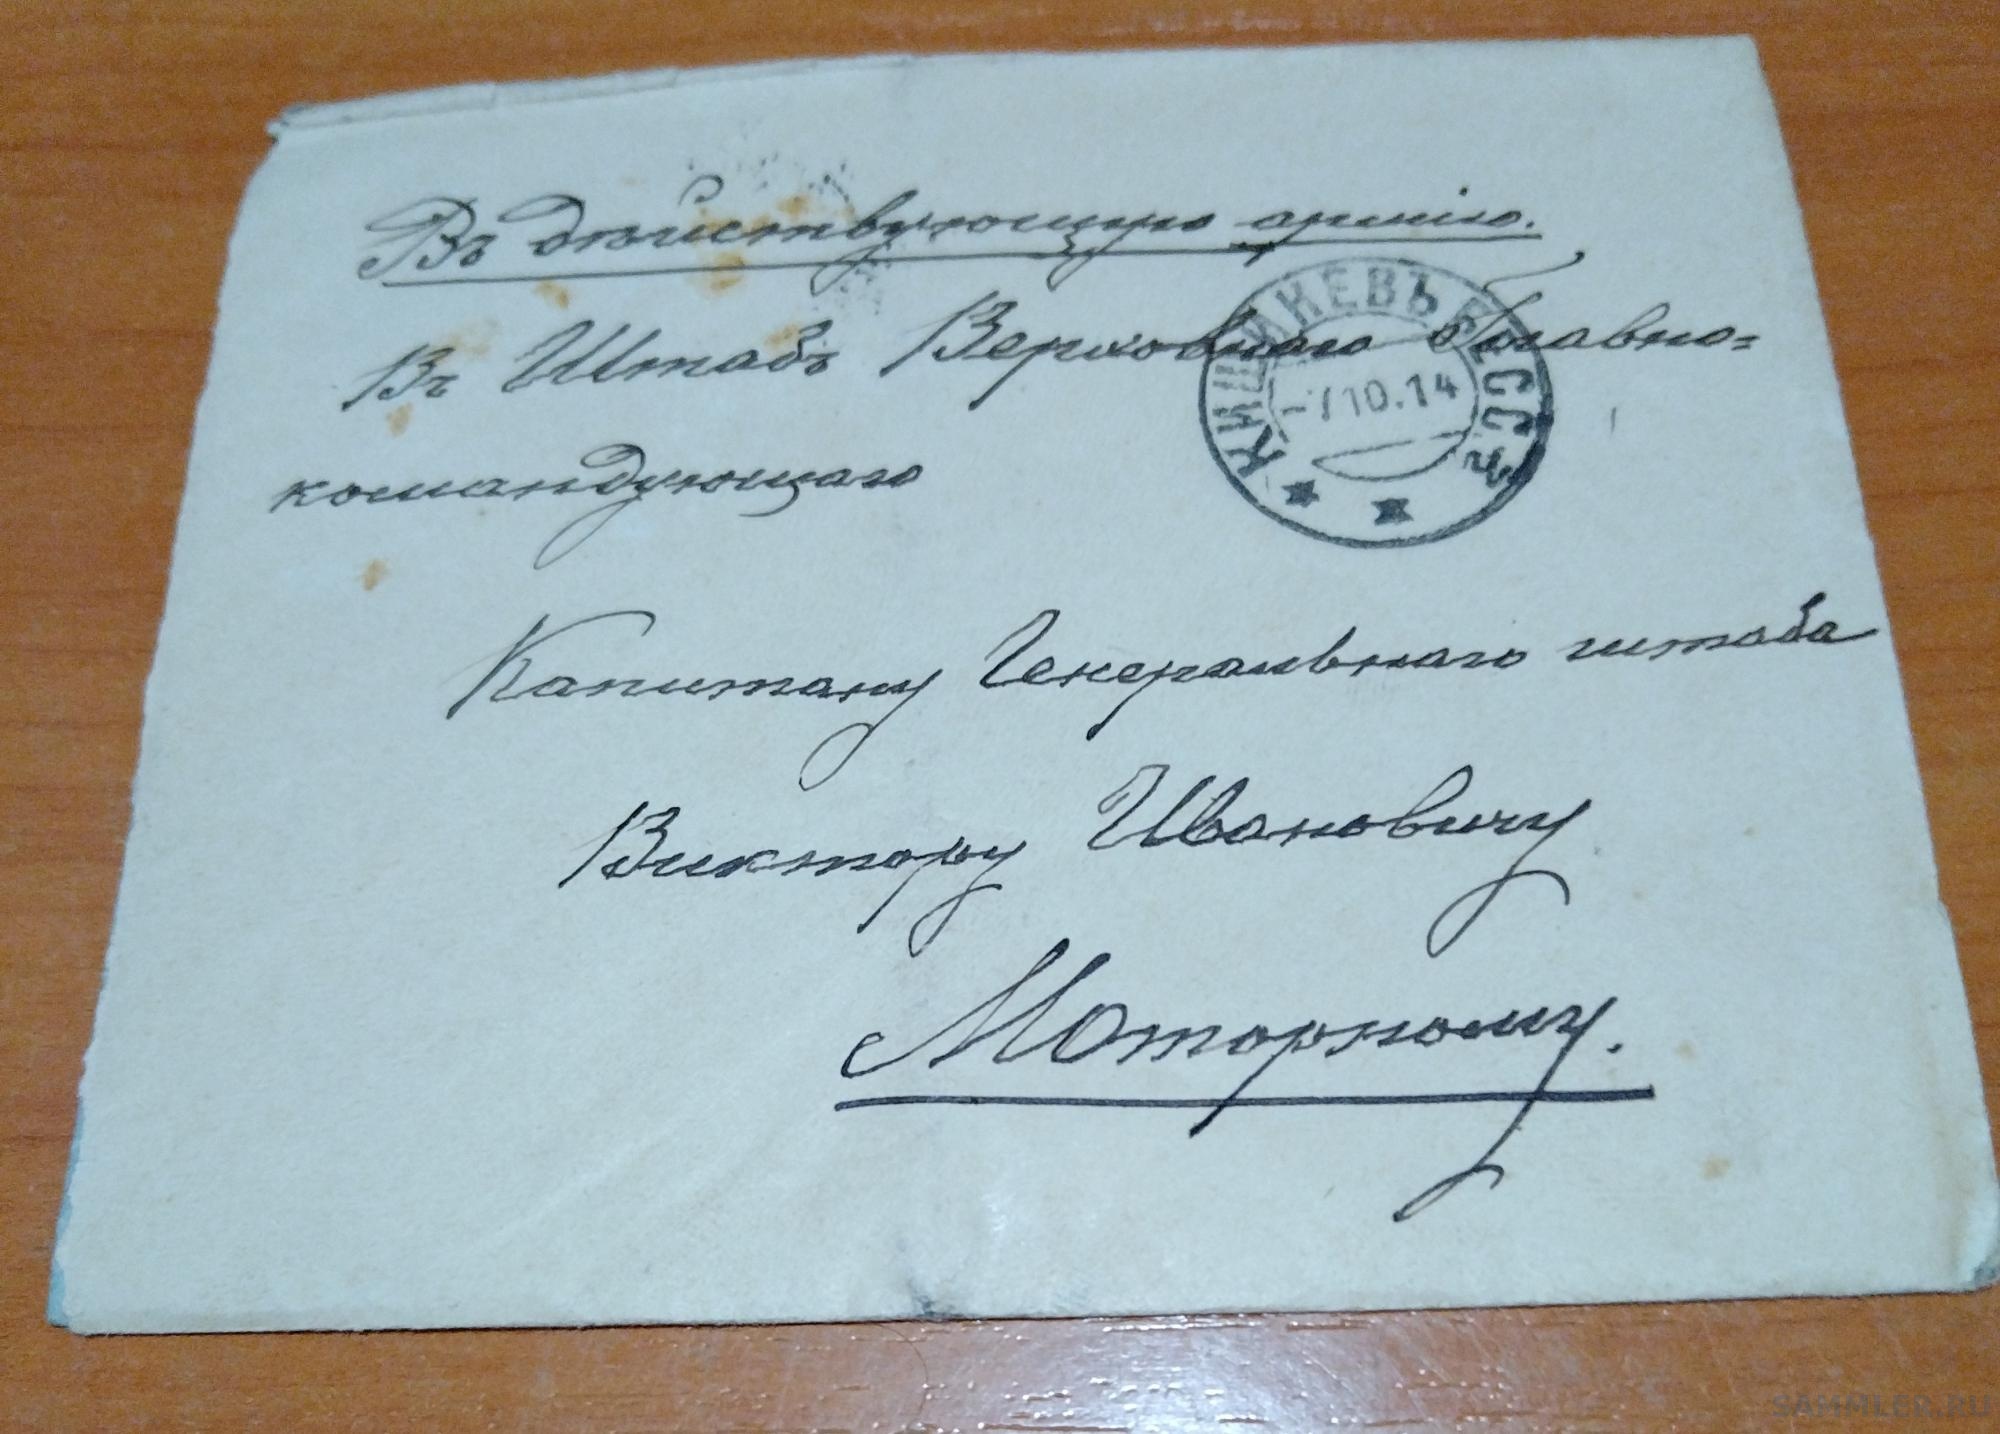 Въ дѣйствующую армію.
Въ Штабъ Верховнаго Главно=
командующаго
Капитану Генеральнаго штаба
Виктору Ивановичу
Моторному.
КИШИНЕВЪ БЕСС.
-7 10.14
SAMMLER.RU